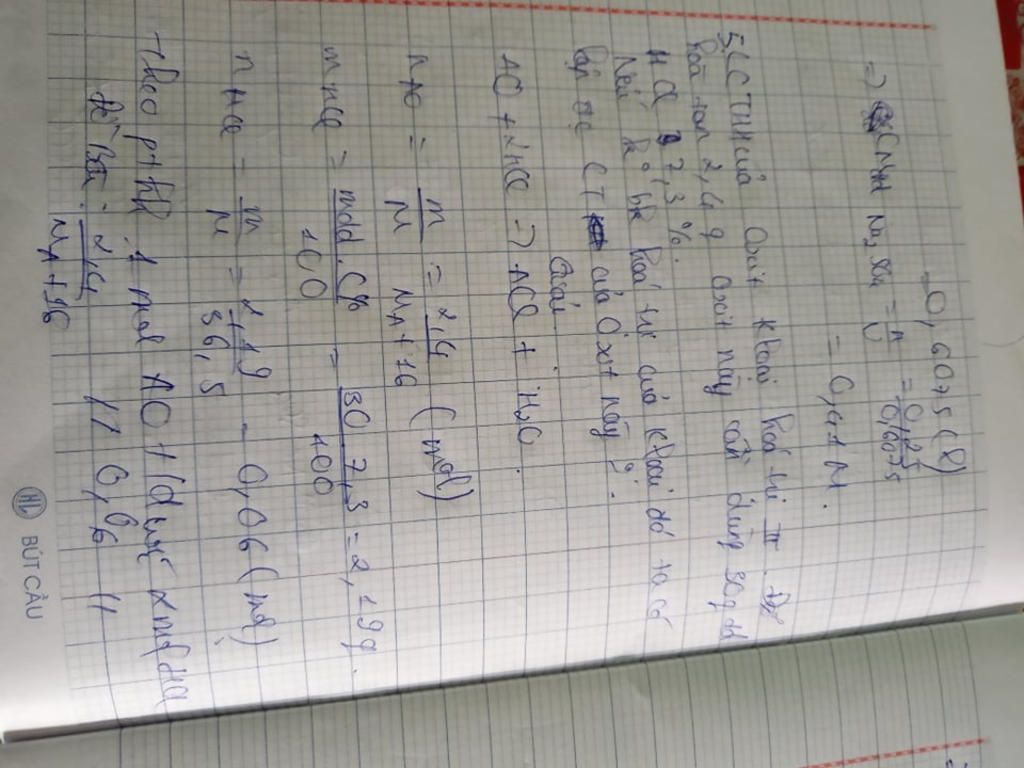 = 0,6075 (l)
=> CM Na2SO4 = n/V = 0,25/0,6075
= 0,41 M.
5, CTHH của Oxit kloại hoá trị II. Để
hoà tan 2,4 g oxit này cần dùng 30g dd
HCl 7,3 %.
Nếu ko bk hoá trị của kloại đó ta có
lập đc CT của Oxit này ?.
Giải
AO + 2HCl -> ACl + H2O.
nAO = m/M = 2,4/MA + 16 (mol)
m HCl = mdd . C%/100 = 30.7,3/100 = 2,19g.
n HCl = m/M = 2,19/36,5 = 0,06 (mol)
Theo pthh 1 mol AO t/d với 2 mol HCl
đề Bài : 2,4/MA + 16 // 0,06 //
BÚT CẦU